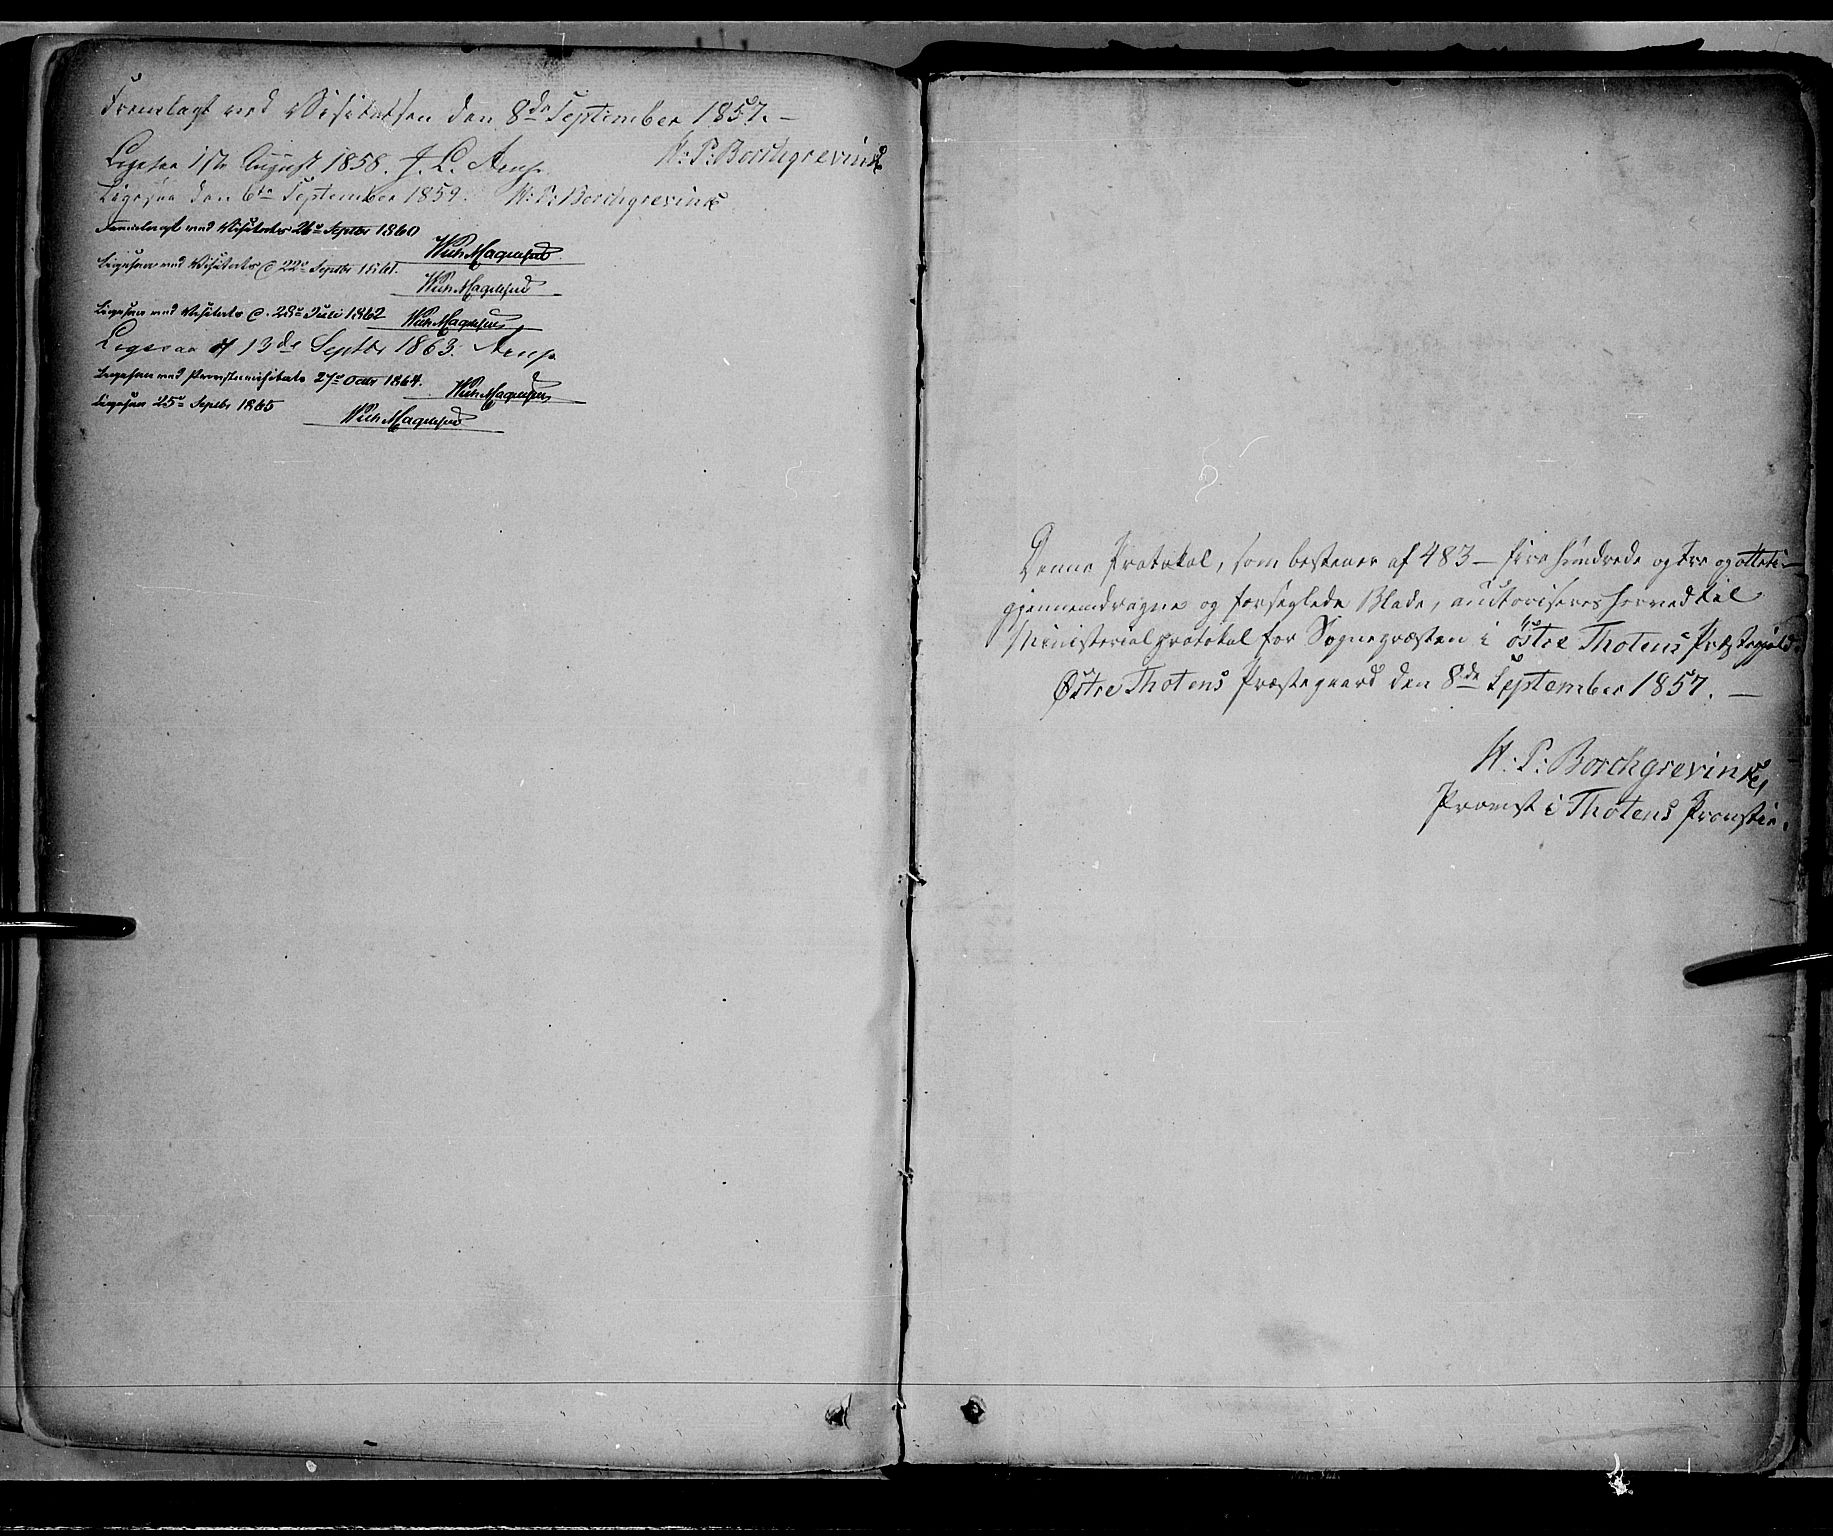 Fremlagt ved Visitatsen den 8de September 1857. —
H: P: Borchgrevink
Ligesaa 1ste August 1858. J. L. Arup
Ligesaa den 6te September 1859. H: P: Borchgrevink
Fremlagt ved Visitats 26de Septbr 1860
Wilh Magelssen
Ligesaa ved Visitats d 22de Septbr 1861.
Wilh Magelssen
Ligesaa ved Visitats d. 28de Juli 1862 Wilh Magelssen
Ligesaa 13de Septbr 1863. Arup
Ligesaa ved Provstevisitats 27de Octbr 1864. Wilh Magelssen
Ligesaa 25de Septbr 1865 Wilh Magelssen
Denne Protokol, som bestaaer af 483 — fire hundrede og tre og otteti —
gjennemdragne og forseglede Blade, autoriseres herved til
Ministerialprotokol for Sognepræsten i Østre Thotens Præstegjeld.
Østre Thotens Præstegaard den 8de September 1857. —
H: P: Borchgrevink,
Provst i Thotens Provstie.